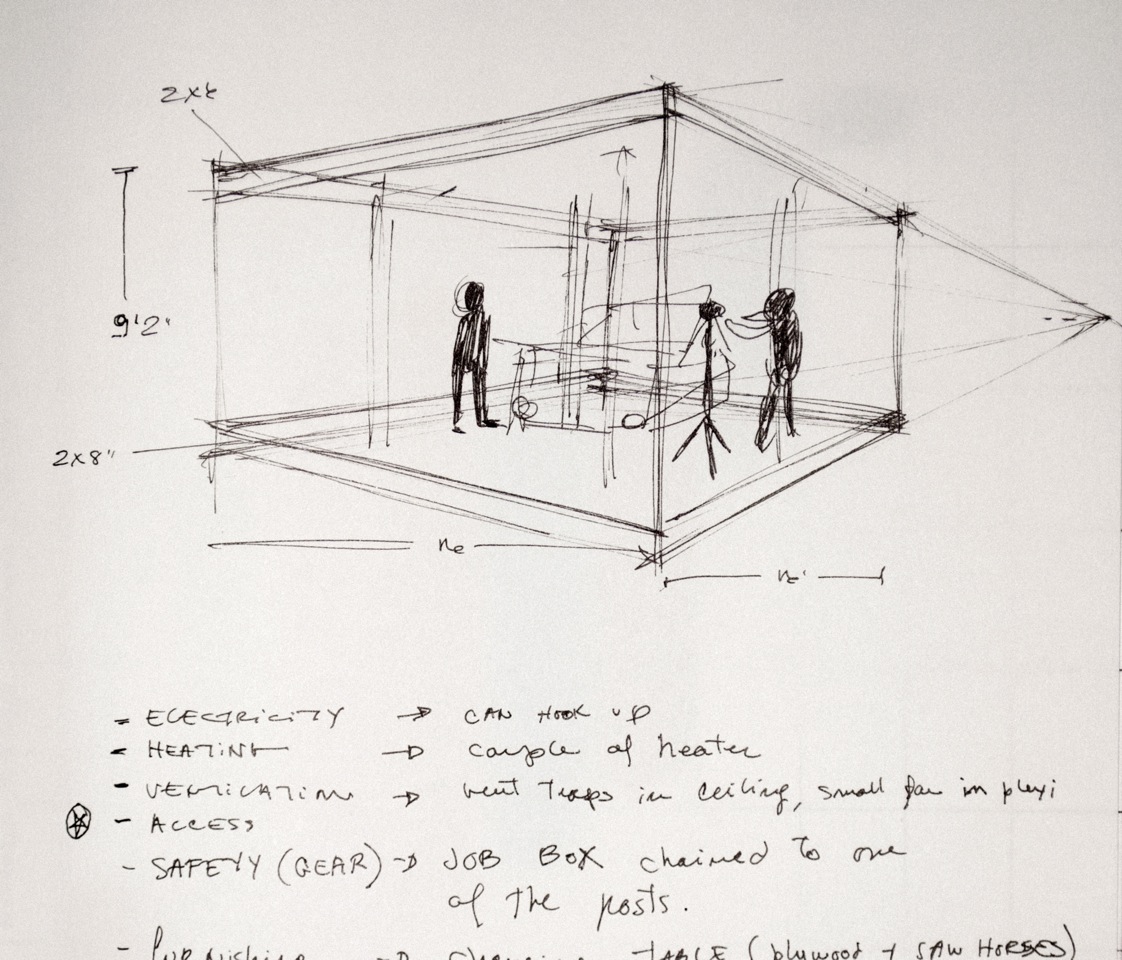 9'2"
2x8"
- ELECTRICITY → CAN HOOK UP
- HEATING → couple of heater
- VENTILATION → vent traps in ceiling, small fan in plexi
- ACCESS
- SAFETY (GEAR) → JOB BOX chained to one
of the posts.
- FURNISHING → TABLE (plywood + SAW HORSES)